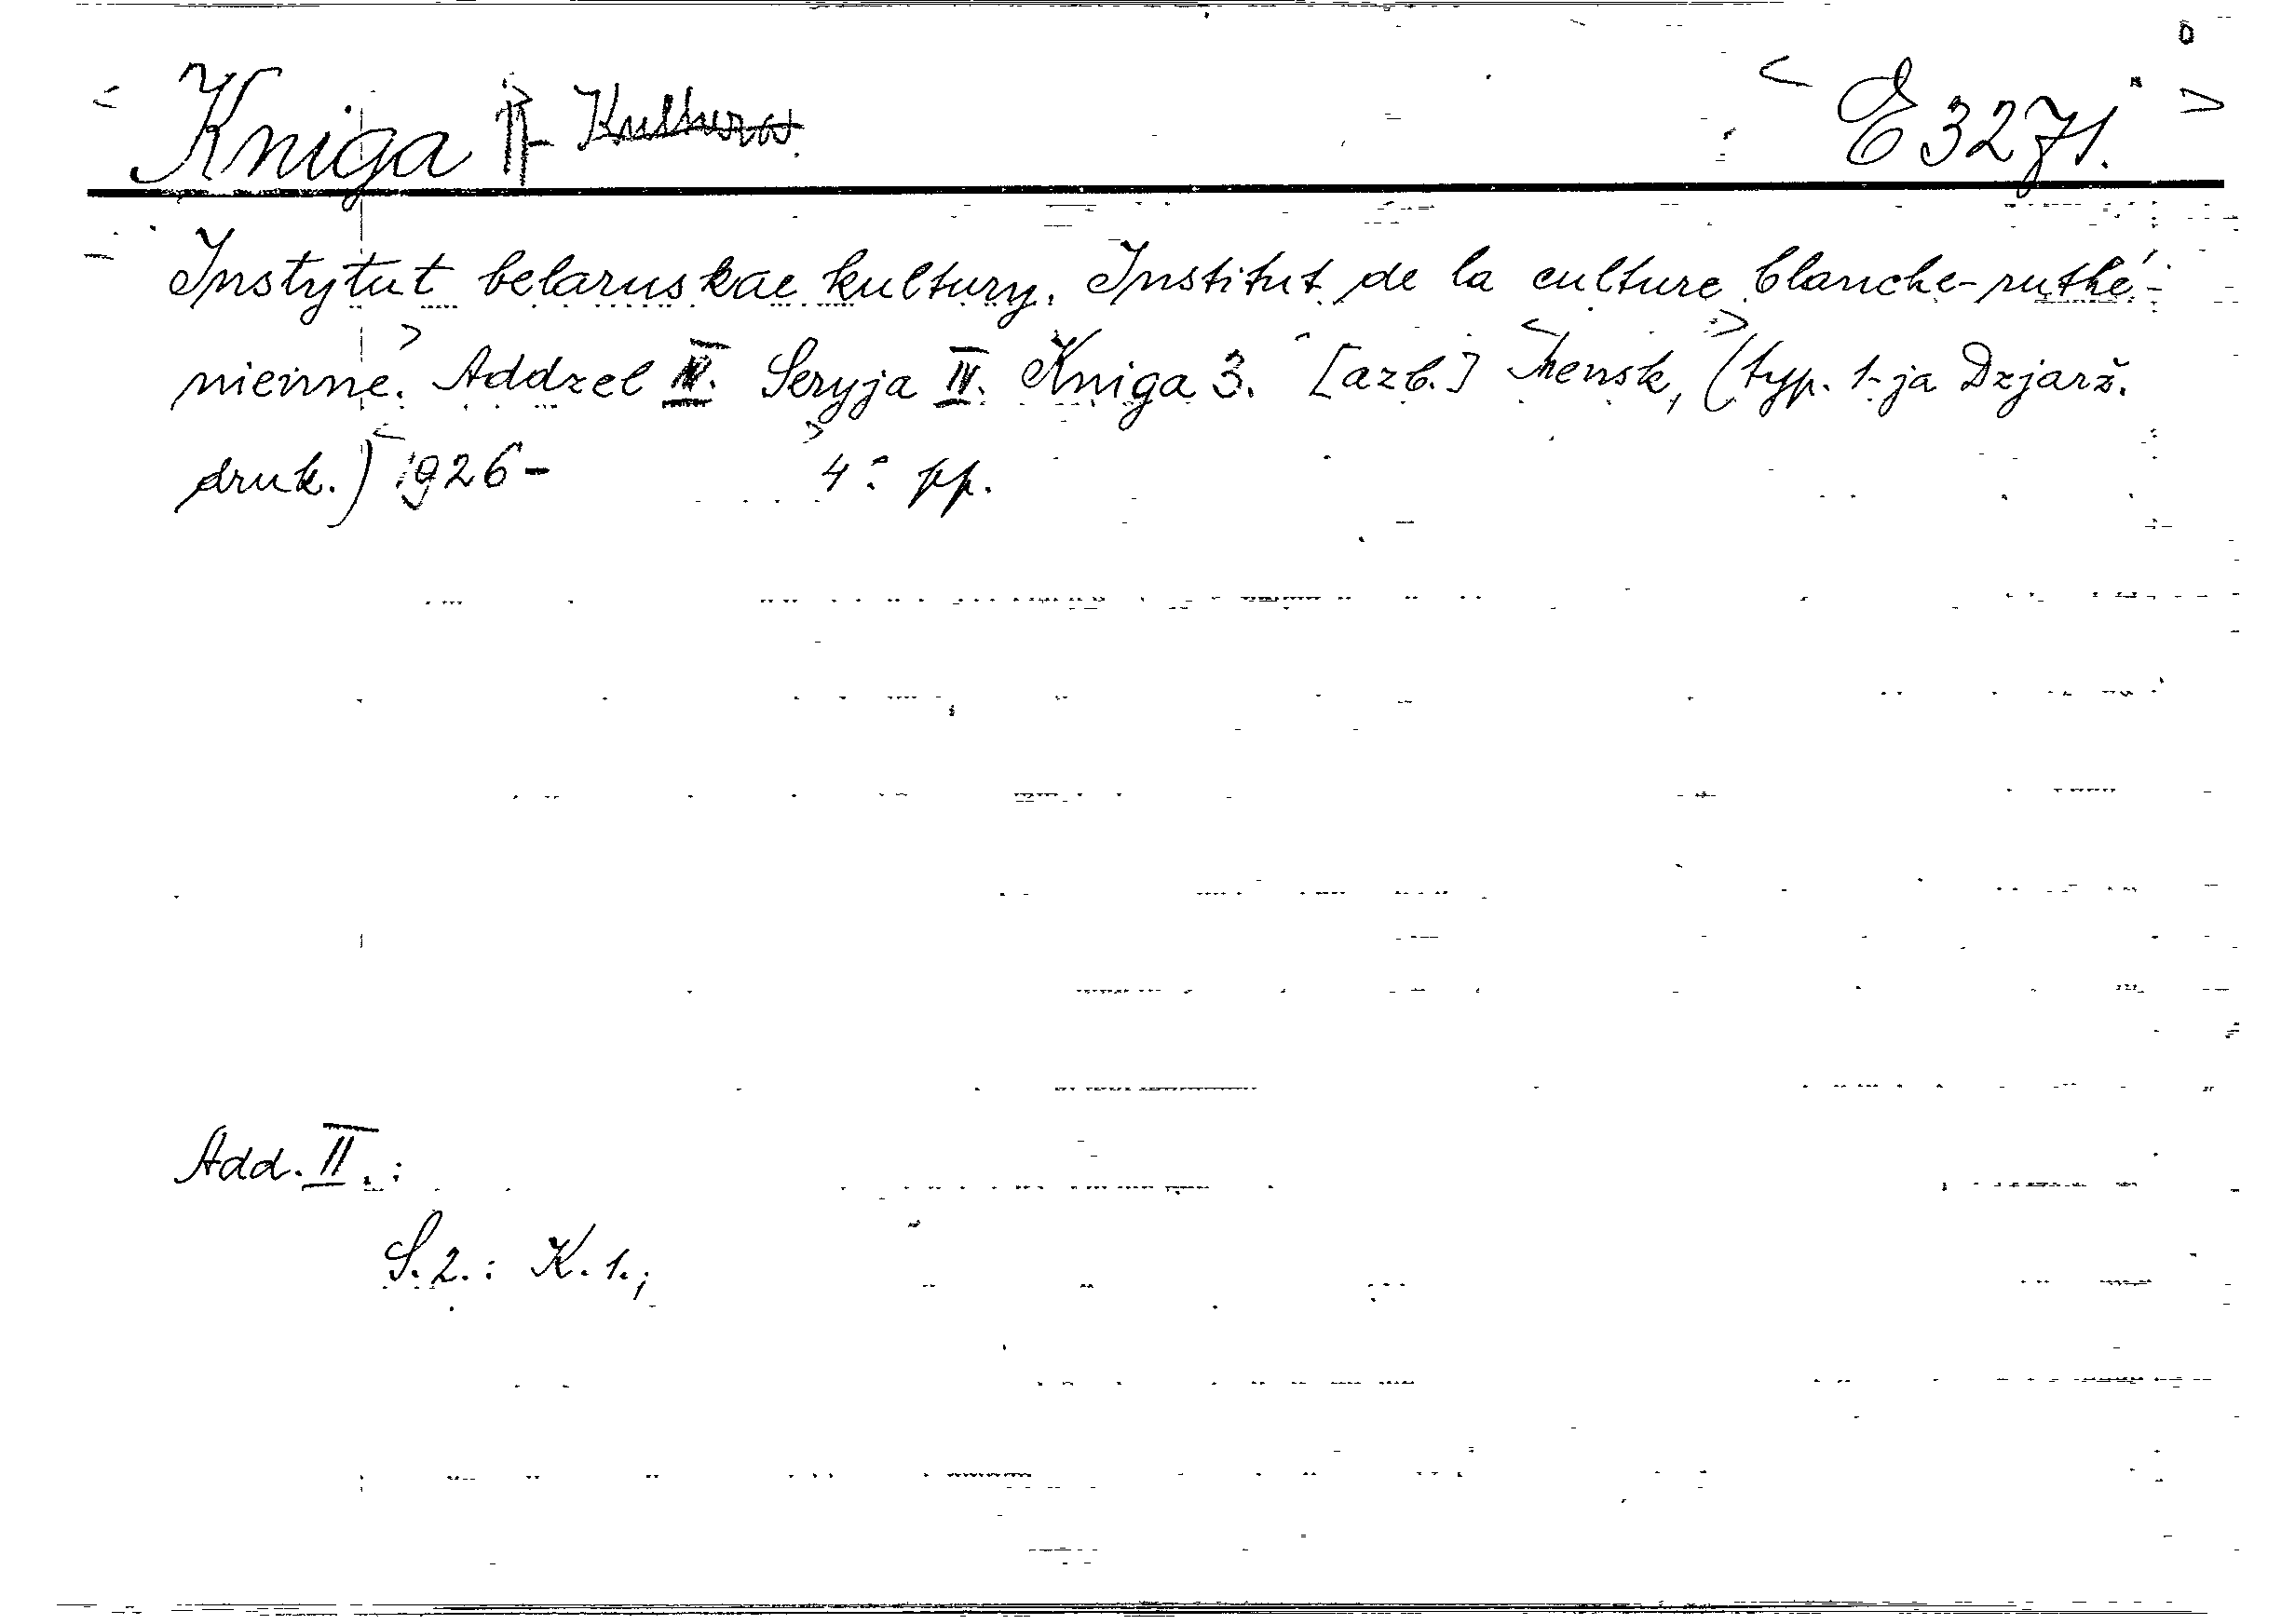 Kniga Kultura. E 3271.
Instytut belaruskae kultury. Institut de la culture blanche-ruthé-
nienne. Addzel II. Seryja II. Kniga 3. [azb.] Mensk, (typ. 1-ja Dzjarž.
druk.) 1926- 4° pp.
Add. II.:
S. 2.: K. 1.;